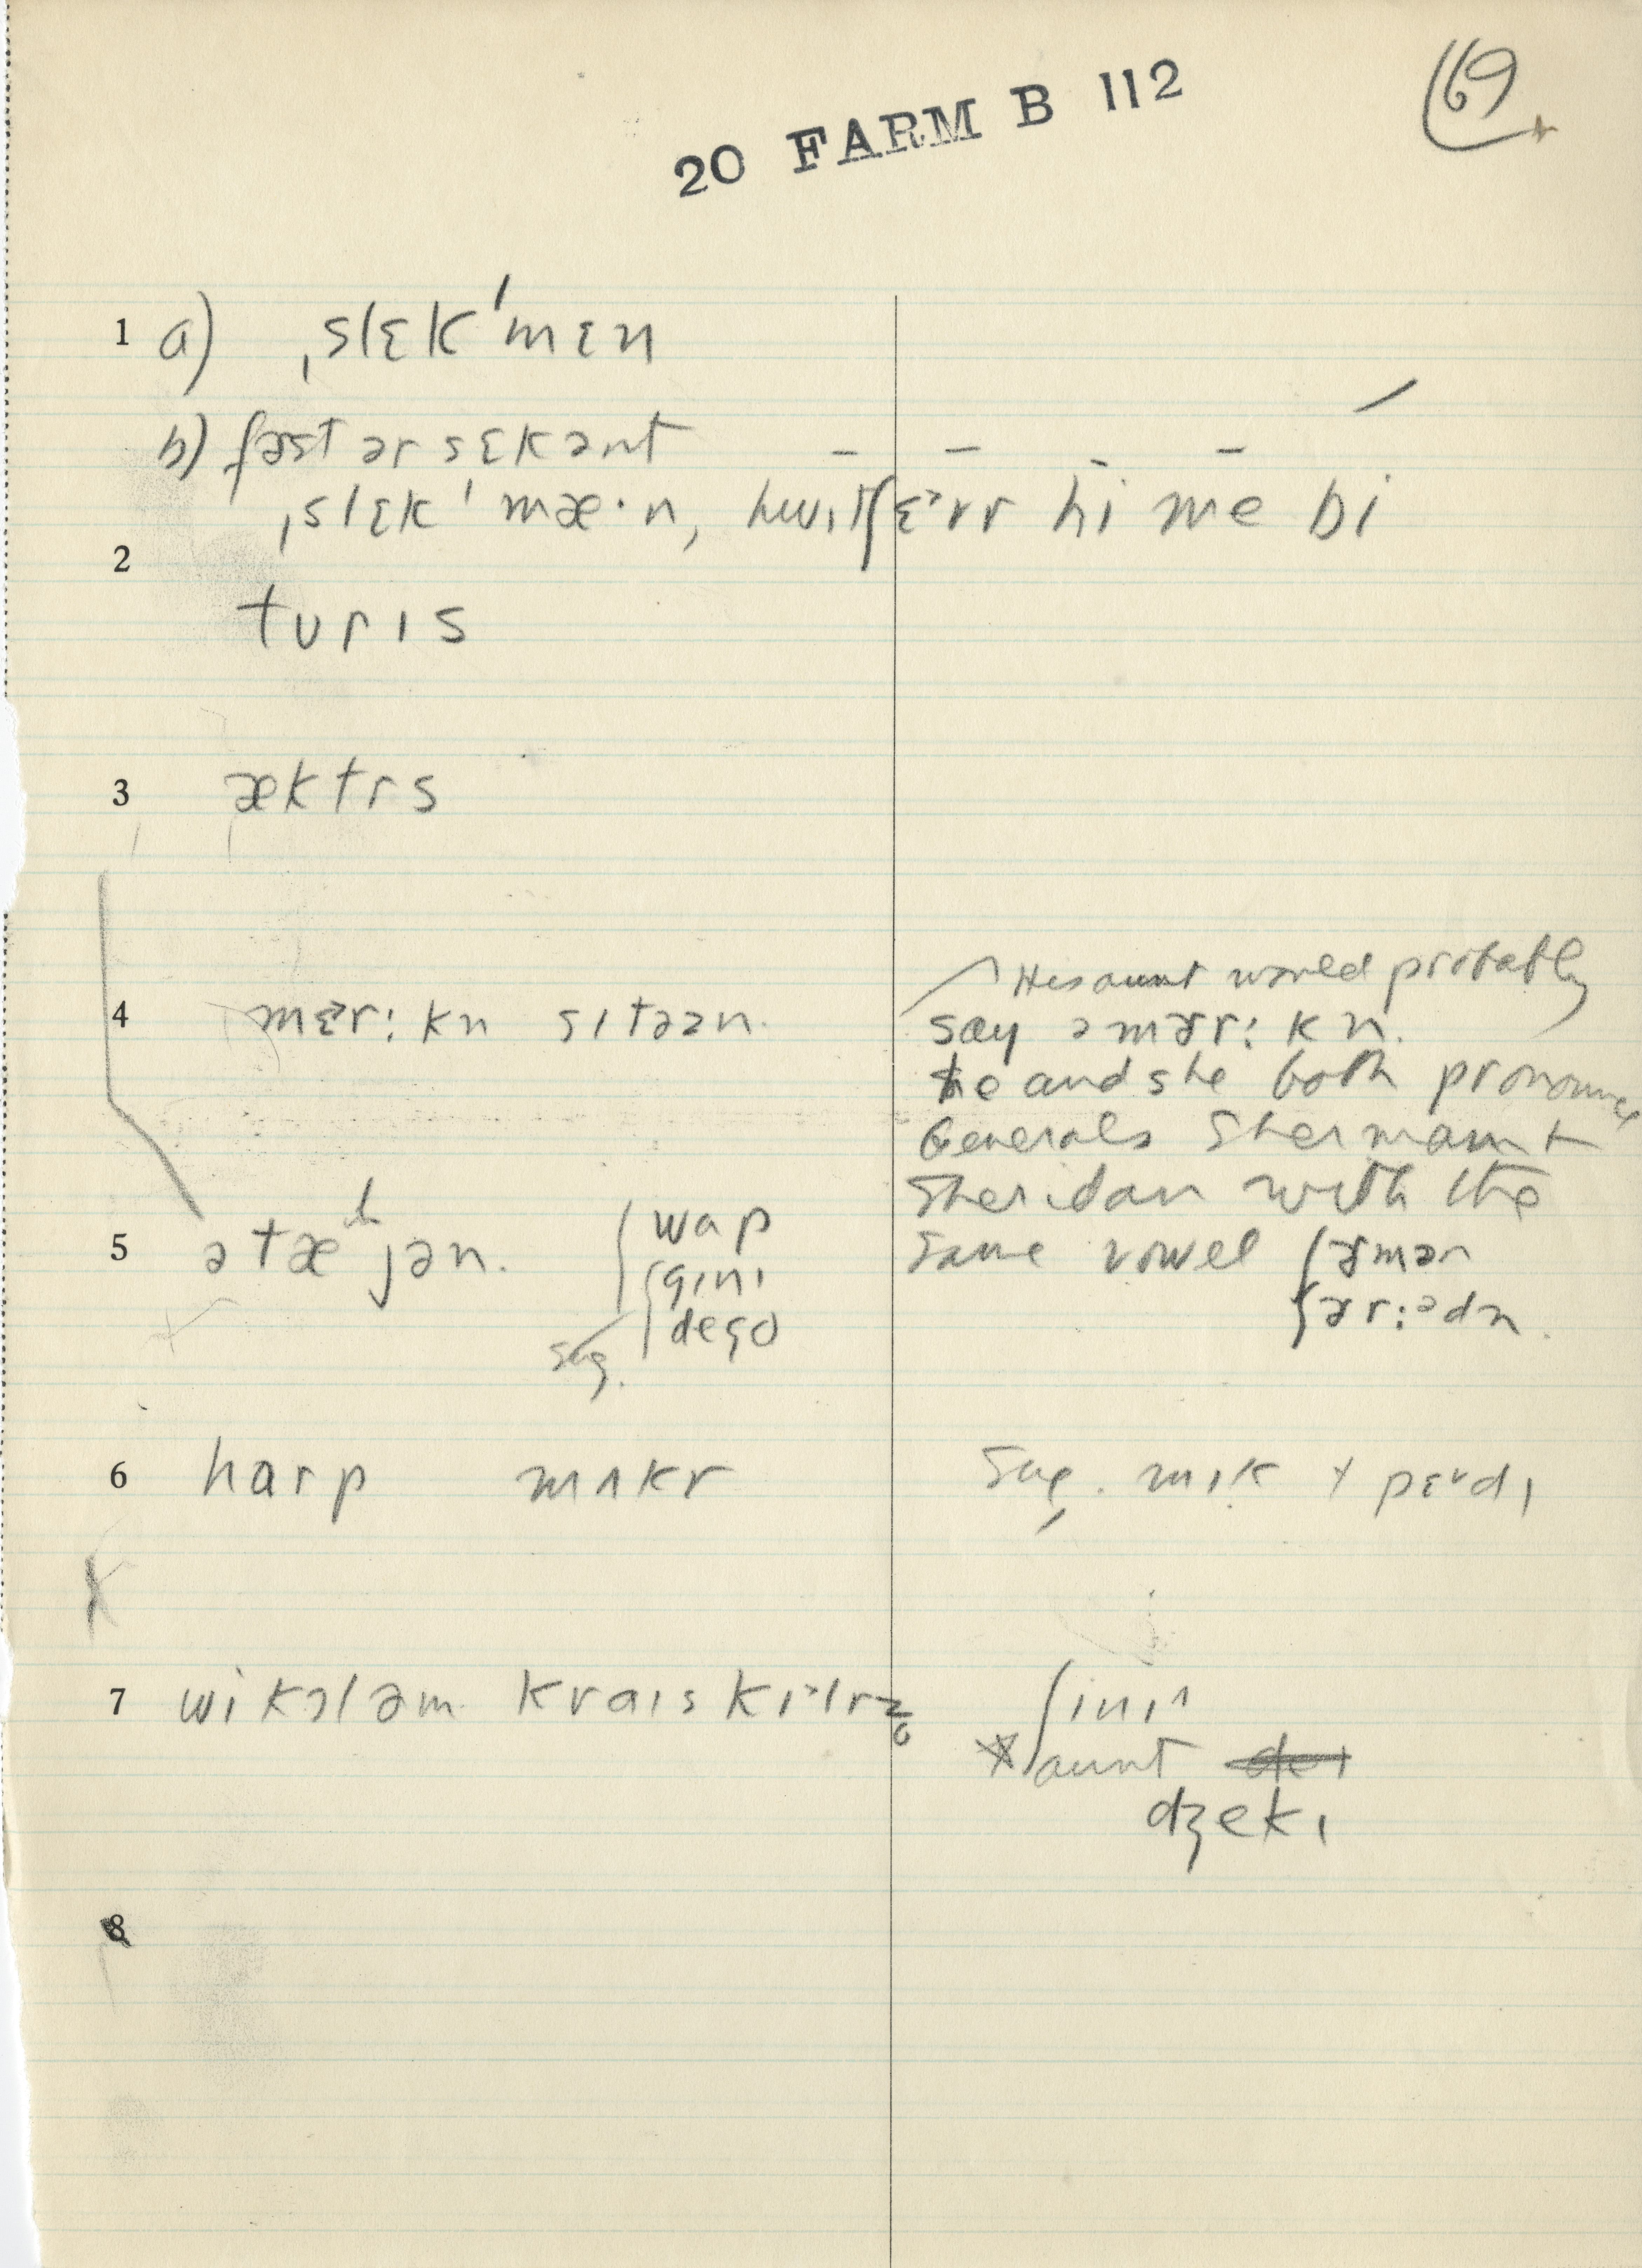 20 FARM B 112
69
1 a) ˌslɛkˈmɛn
b) fəst ər sɛkənt
ˌslɛkˈmæ·n, hwɪtʃɛˀvr hi me bi
2
tʊrɪs
3 æktrs
4 mɛˀr:kn sɪtəzn.
His aunt would probably
say əmɤr:kn.
He and she both pronounce
Generals Sherman +
Sheridan with the
same vowel ʃɤmən
ʃɤr:ədn.
5 ətæljən.
wap
gɪnɪ
dego
sug.
6 harp mʌkr
Sug. mɪk + pɛˑdɪ
7 wi kɔl əm kraɪs kɪˀlrz
ʃinɪ
aunt
dʒekɪ
8